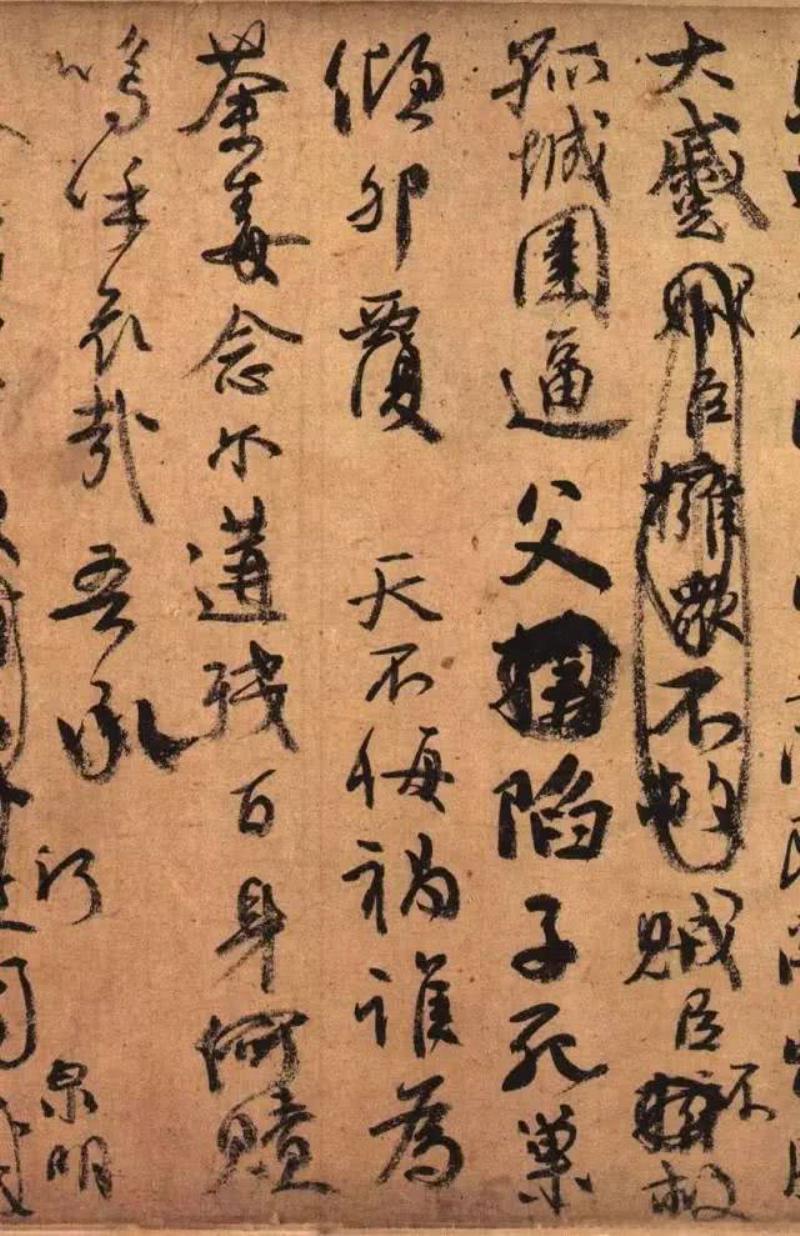 大蹙賊臣擁衆不救賊臣不救
孤城圍逼父陷子死巢
傾卵覆天不悔禍誰為
荼毒念爾遘殘百身何贖
嗚呼哀哉吾承
泉明